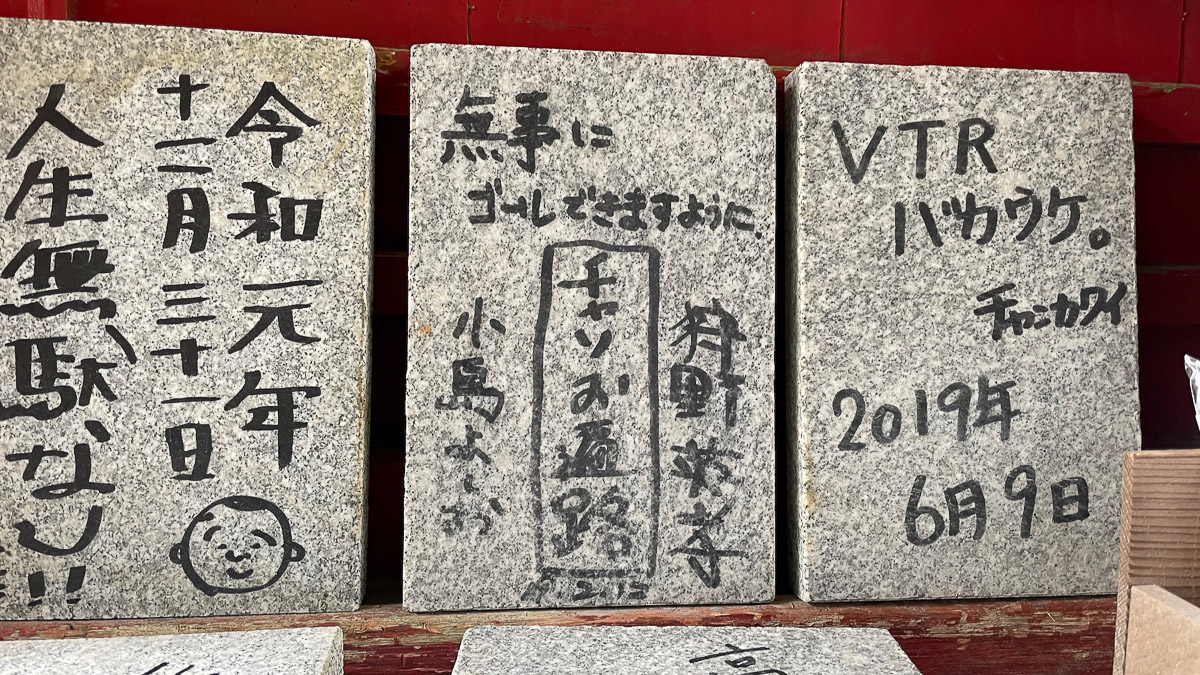 令和元年
十二月三十一日
人生無駄なし!!
無事に
ゴールできますように.
狩野英孝
チャリお遍路
小島よしお
VTR
バカウケ。
チャンカワイ
2019年
6月9日